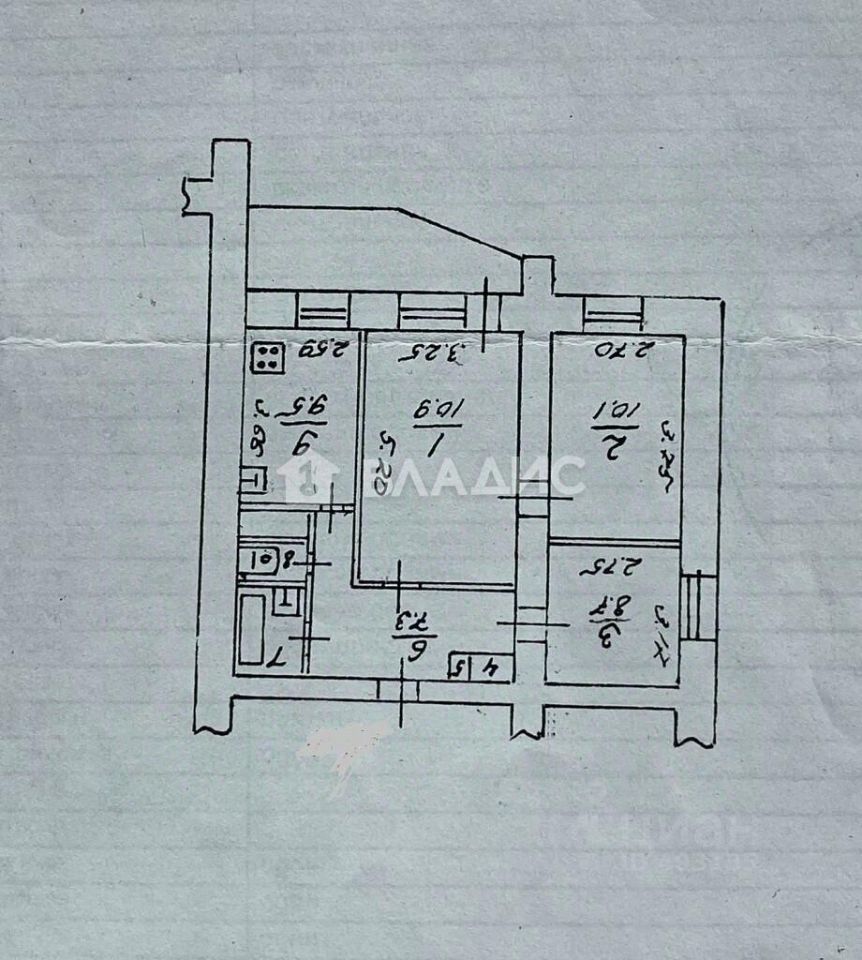 2.59
3.25
2.70
9
9.5
3.68
1
16.9
5.20
2
10.1
3.75
ВЛАДИС
8
2.75
3
8.7
3.17
6
7.3
7
5
4
циан